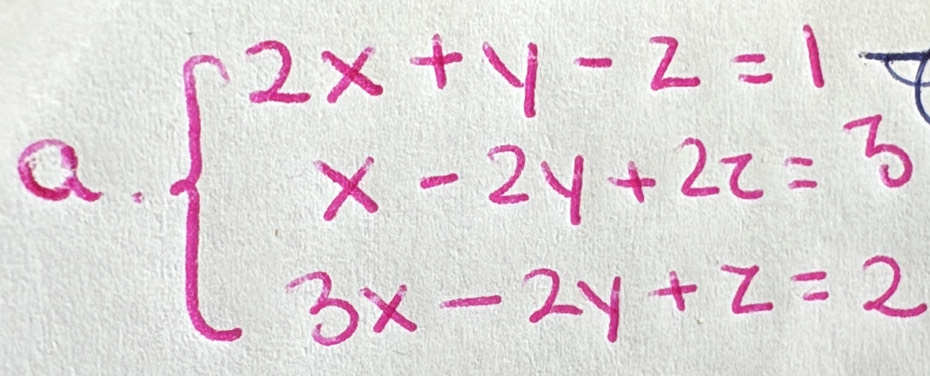 2x + y - z = 1
a. x - 2y + 2z = 3
3x - 2y + z = 2